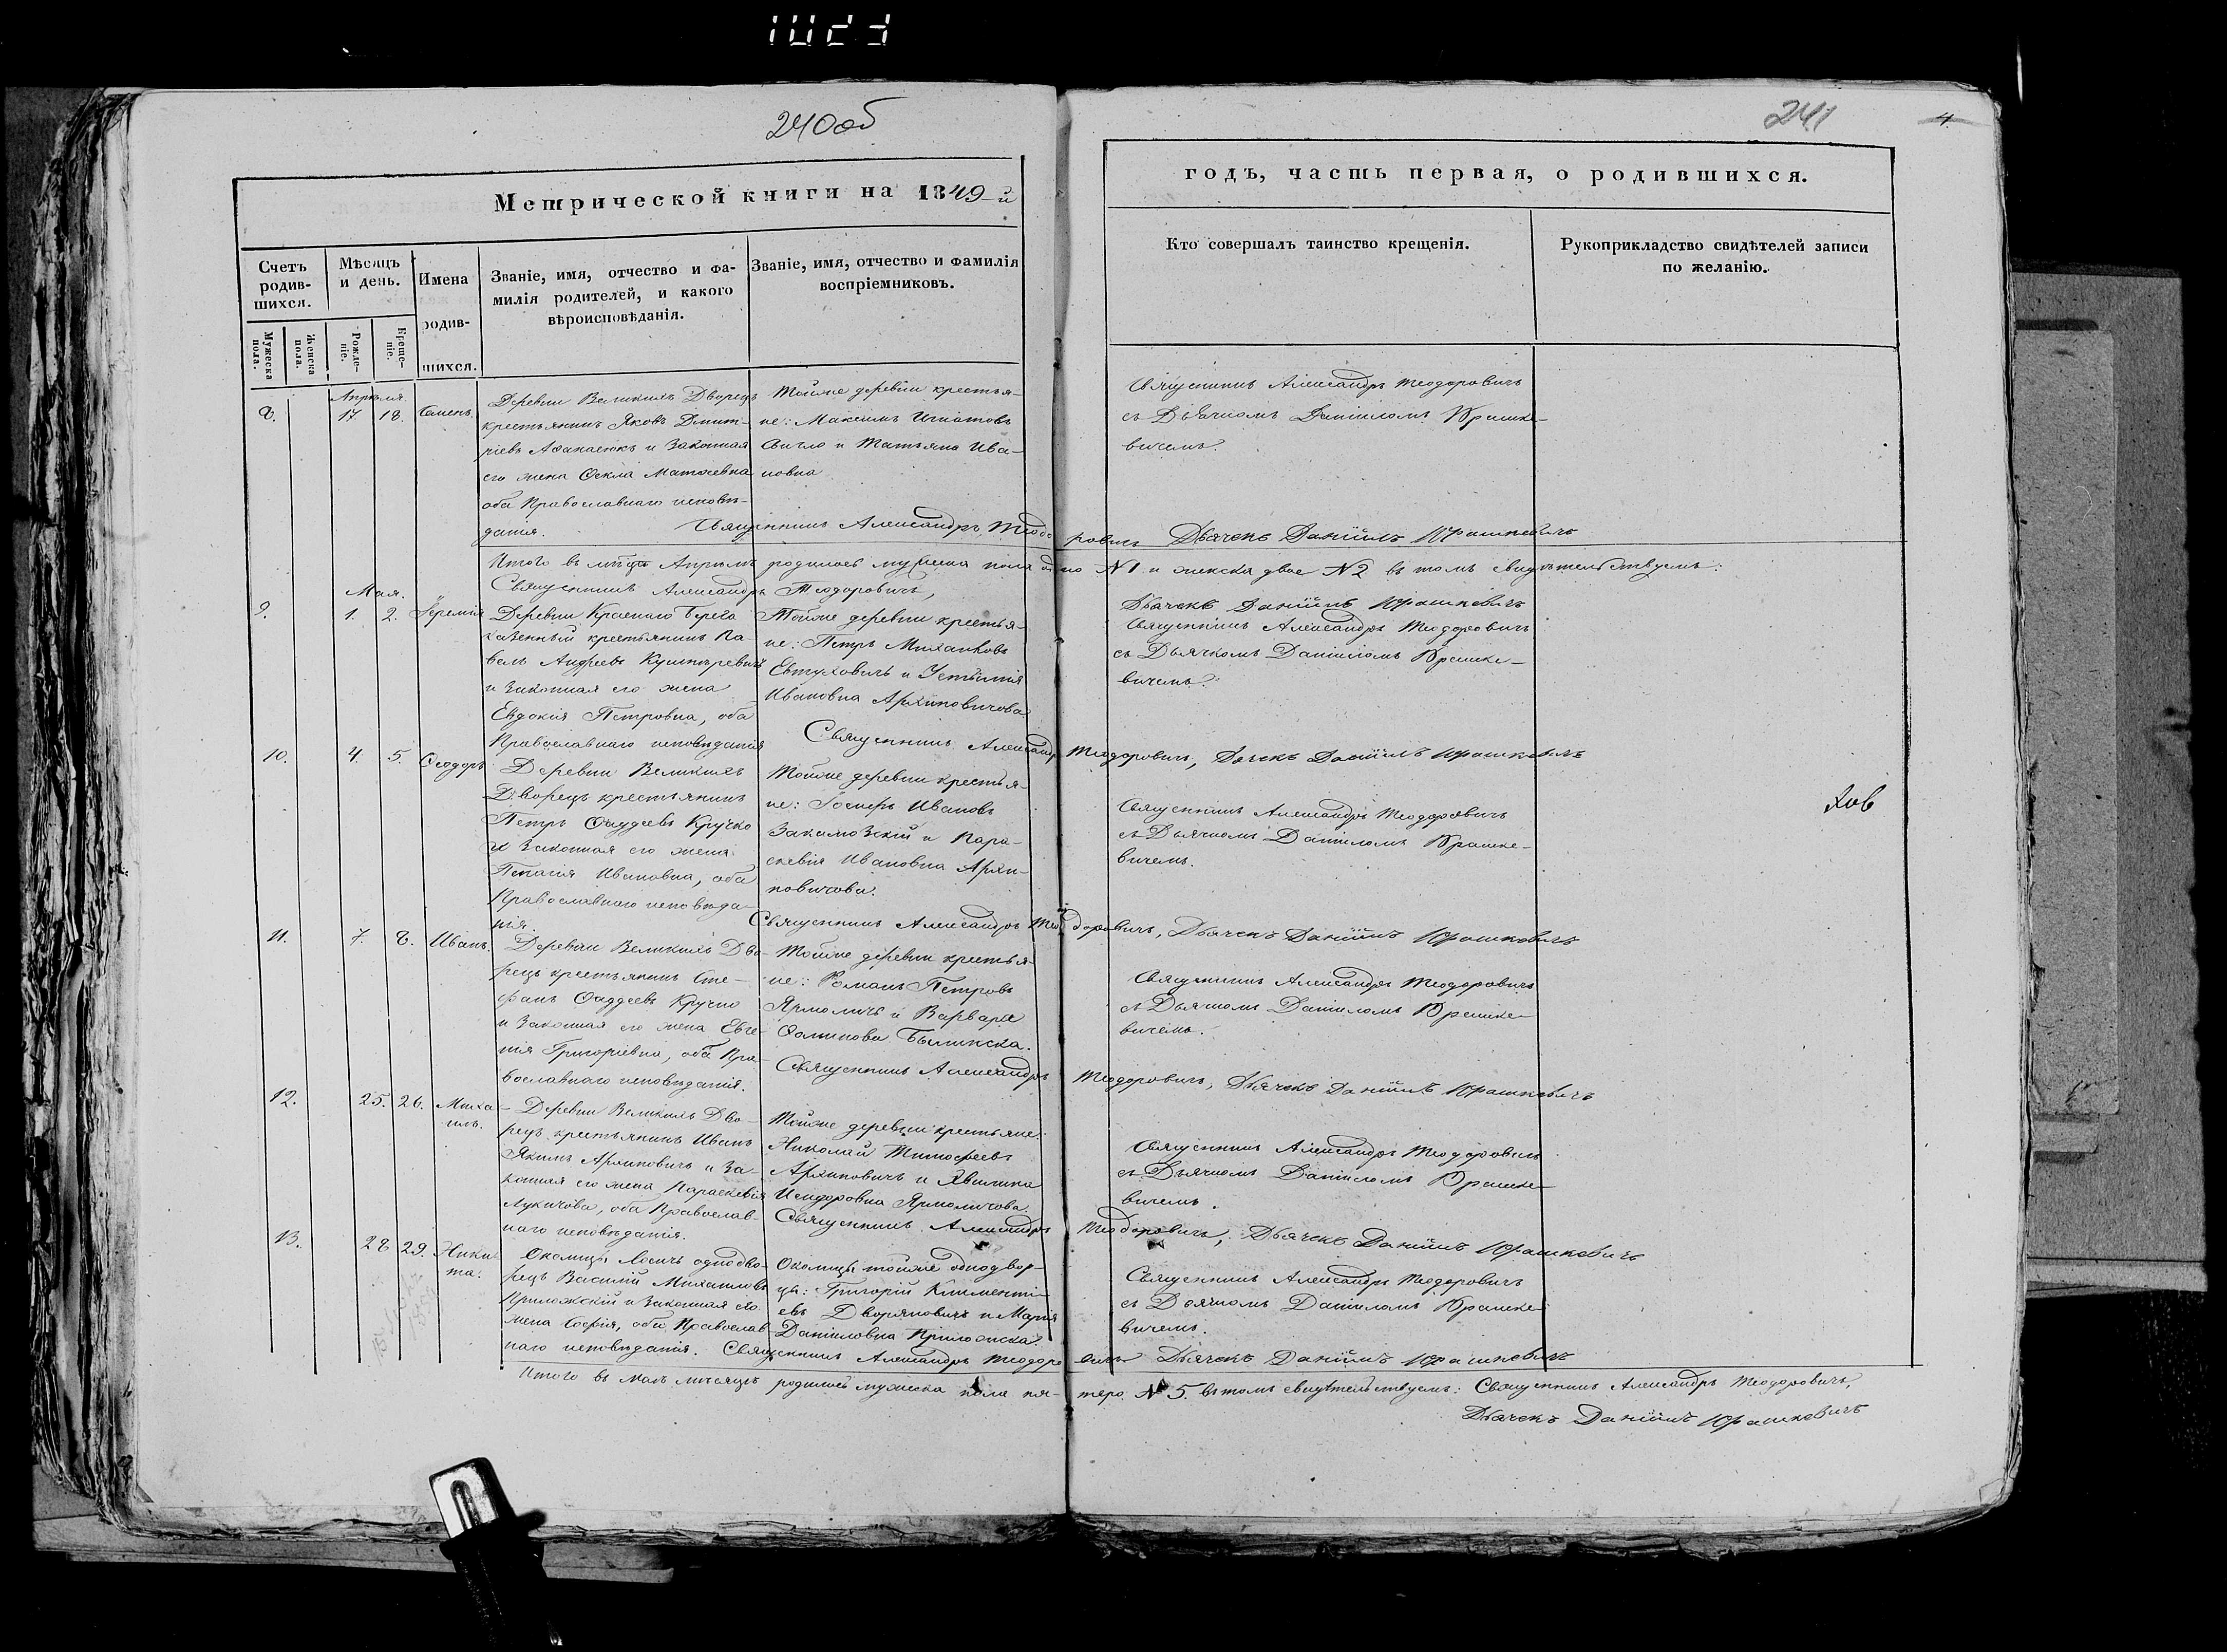 1023
240об
241
4
Метрической книги на 1849-й
годъ, часть первая, о родившихся.
Счетъ родив-шихся.
Мѣсяцъ и день.
Имена родив-шихся.
Званіе, имя, отчество и фа-
милія родителей, и какого
вѣроисповѣданія.
Званіе, имя, отчество и фамилія
воспріемниковъ.
Кто совершалъ таинство крещенія.
Рукоприкладство свидѣтелей записи
по желанію.
Мужеска пола.
Женска пола.
Рожде-ніе.
Креще-ніе.
Апрѣля
8. 17 18. Семенъ.
Деревни Великихъ Дворецъ
крестьянинъ Яковъ Дмит-
ріевъ Афанасюкъ и Законная
его жена Ѳекла Матѳеевна
оба Православнаго исповѣ-
данія.
Тойже деревни крестья-
не: Максимъ Игнатовъ
и Татьяна Ива-
новна
Священникъ Александръ Теодоровичъ
съ Дьячкомъ Даніиломъ Юрашке-
вичемъ.
Священникъ Александръ Теодоровичъ Дьячекъ Даніилъ Юрашкевичъ
Итого въ м-цѣ Апрѣлѣ родилось мужеска пола одно №1 и женска двое №2 въ томъ свидѣтельствуемъ:
Священникъ Александръ Теодоровичъ,
Дьячекъ Даніилъ Юрашкевичъ
Мая.
9. 1. 2. Іеремія
Деревни Краснаго Берега
казенный крестьянинъ Па-
велъ Андреевъ
и Законная его жена
Евдокія Петровна, оба
Православнаго исповѣданія
Тойже деревни крестья-
не: Петръ Михайловъ
Евтуховичъ и Устинія
Ивановна Архиповичова
Священникъ Александръ Теодоровичъ
съ Дьячкомъ Даніиломъ Юрашке-
вичемъ.
Священникъ Александръ Теодоровичъ, Дьячекъ Даніилъ Юрашкевичъ
10. 4. 5. Ѳеодоръ
Деревни Великихъ
Дворецъ крестьянинъ
Петръ Ѳаддеевъ Кручко
и Законная его жена
Пелагія Ивановна, оба
Православнаго исповѣда-
нія.
Тойже деревни крестья-
не: Іосифъ Ивановъ
и Пара-
скевія Ивановна Архи-
повичова.
Священникъ Александръ Теодоровичъ
съ Дьячкомъ Даніиломъ Юрашке-
вичемъ.
Священникъ Александръ Теодоровичъ, Дьячекъ Даніилъ Юрашкевичъ
11. 7. 8. Иванъ.
Деревни Великихъ Дво-
рецъ крестьянинъ Сте-
фанъ Ѳаддеевъ Кручко
и Законная его жена Евге-
нія Григоріевна, оба Пра-
вославнаго исповѣданія.
Тойже деревни крестья-
не: Романъ Петровъ
Ярмоличъ и Варвара
Священникъ Александръ Теодоровичъ
съ Дьячкомъ Даніиломъ Юрашке-
вичемъ.
Священникъ Александръ Теодоровичъ, Дьячекъ Даніилъ Юрашкевичъ
12. 25. 26. Миха-
илъ.
Деревни Великихъ Дво-
рецъ крестьянинъ Иванъ
Якимъ Архиповичъ и За-
конная его жена Параскевія
Лукичова, оба Православ-
наго исповѣданія.
Тойже деревни крестьяне:
Николай Тимофеевъ
Архиповичъ и
Исидоровна Ярмоличова.
Священникъ Александръ Теодоровичъ
съ Дьячкомъ Даніиломъ Юрашке-
вичемъ.
Священникъ Александръ Теодоровичъ, Дьячекъ Даніилъ Юрашкевичъ
13. 28 29. Ники-
та.
Околицы Лосичъ однодво-
рецъ Василій Михайловъ
Приложскій и Законная его
жена Софія, оба Православ-
наго исповѣданія.
Околицы тойже однодвор-
цы: Григорій Клименті-
евъ Дворяновичъ и Марія
Даніиловна Приложска.
Священникъ Александръ Теодоровичъ
съ Дьячкомъ Даніиломъ Юрашке-
вичемъ.
Священникъ Александръ Теодоровичъ Дьячекъ Даніилъ Юрашкевичъ
Итого въ Маѣ мѣсяцѣ родилось мужеска пола пя-теро №5. въ томъ свидѣтельствуемъ: Священникъ Александръ Теодоровичъ,
Дьячекъ Даніилъ Юрашкевичъ